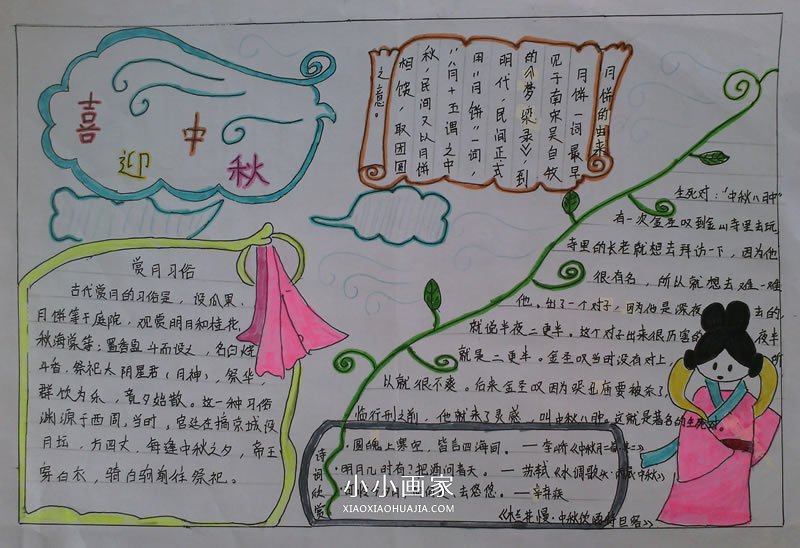 喜迎中秋
月饼的由来
月饼一词最早
见于南宋吴自牧
的《梦粱录》,到
明代,民间正式
用"月饼"一词,
"八月十五谓之中
秋,民间又以月饼
相馈,取团圆
之意。
赏月习俗
古代赏月的习俗是,设瓜果、
月饼等于庭院,观赏明月和桂花,
秋海棠等;置香盘
斗香。祭祀太阴星君(月神),祭毕,
群饮为乐,竟夕始散。这一种习俗
渊源于西周,当时,宫廷在镐京城设
月坛,方四大,每逢中秋之夕,帝王
穿白衣,骑白驹前往祭祀。
生死对:"中秋八月中"
有一次金圣叹到金山寺里去玩
寺里的长老就想去拜访一下,因为他
很有名,所以就想去难一难
他。出了一个对子,因为他是深夜去的
就说半夜二更半。这个对子出来很厉害的夜半
就是二更半。金圣叹当时没有对上,所
以从就很不爽。后来金圣叹因为哭丑庙要被杀了,
临行刑之前,他就来了灵感,叫中秋八月中。这就是著名的生死对
诗词欣赏
·圆魄上寒空,皆言四海同。—李峤《中秋月二首·其二》
·明月几时有?把酒问青天。—苏轼《水调歌头·丙辰中秋》
悠悠。—辛弃疾
《木兰花慢·中秋饮酒将旦客》
小小画家
XIAOXIAOHUAJIA.COM